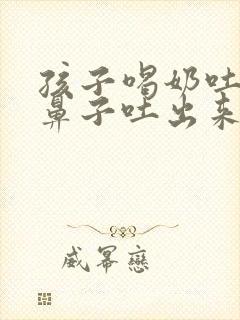 孩子喝奶吐
鼻子吐出来
威幂恋